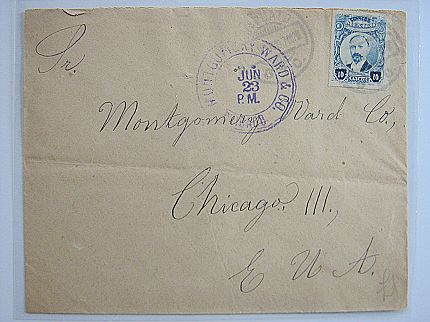 Sr.
MONTGOMERY WARD & CO.
JUN
23
P.M.
10 10
Montgomery Ward Co.,
Chicago. Ill.,
E U A.